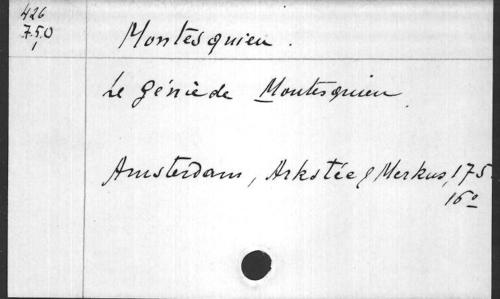 426
750
1
Montesquieu.
Le Génie de Montesquieu.
Amsterdam, Arkstée & Merkus, 175
16º